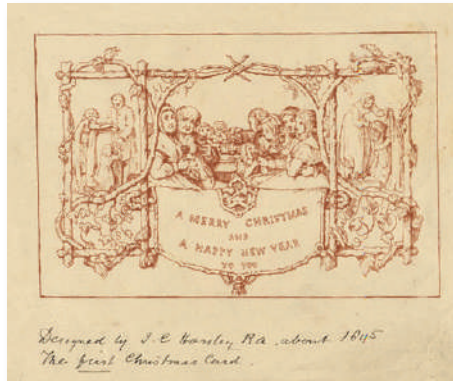 A MERRY CHRISTMAS
AND
A HAPPY NEW YEAR
TO YOU
Designed by J. C Horsley R.a. about 1845
The first Christmas Card.